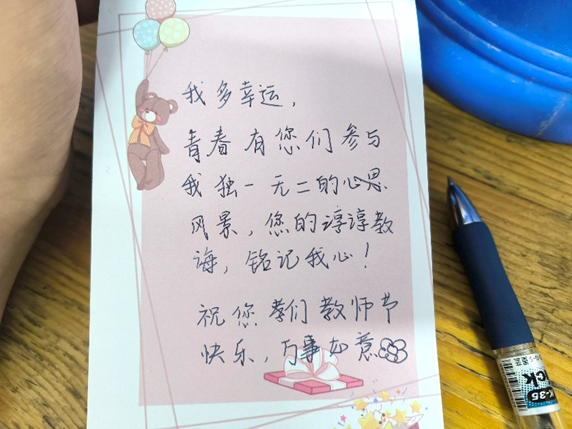 我多幸运，
青春有您们参与
我独一无二的心思
风景，您的谆谆教
诲，铭记我心！
祝您孝们教师节
快乐，万事如意
K-35
CK